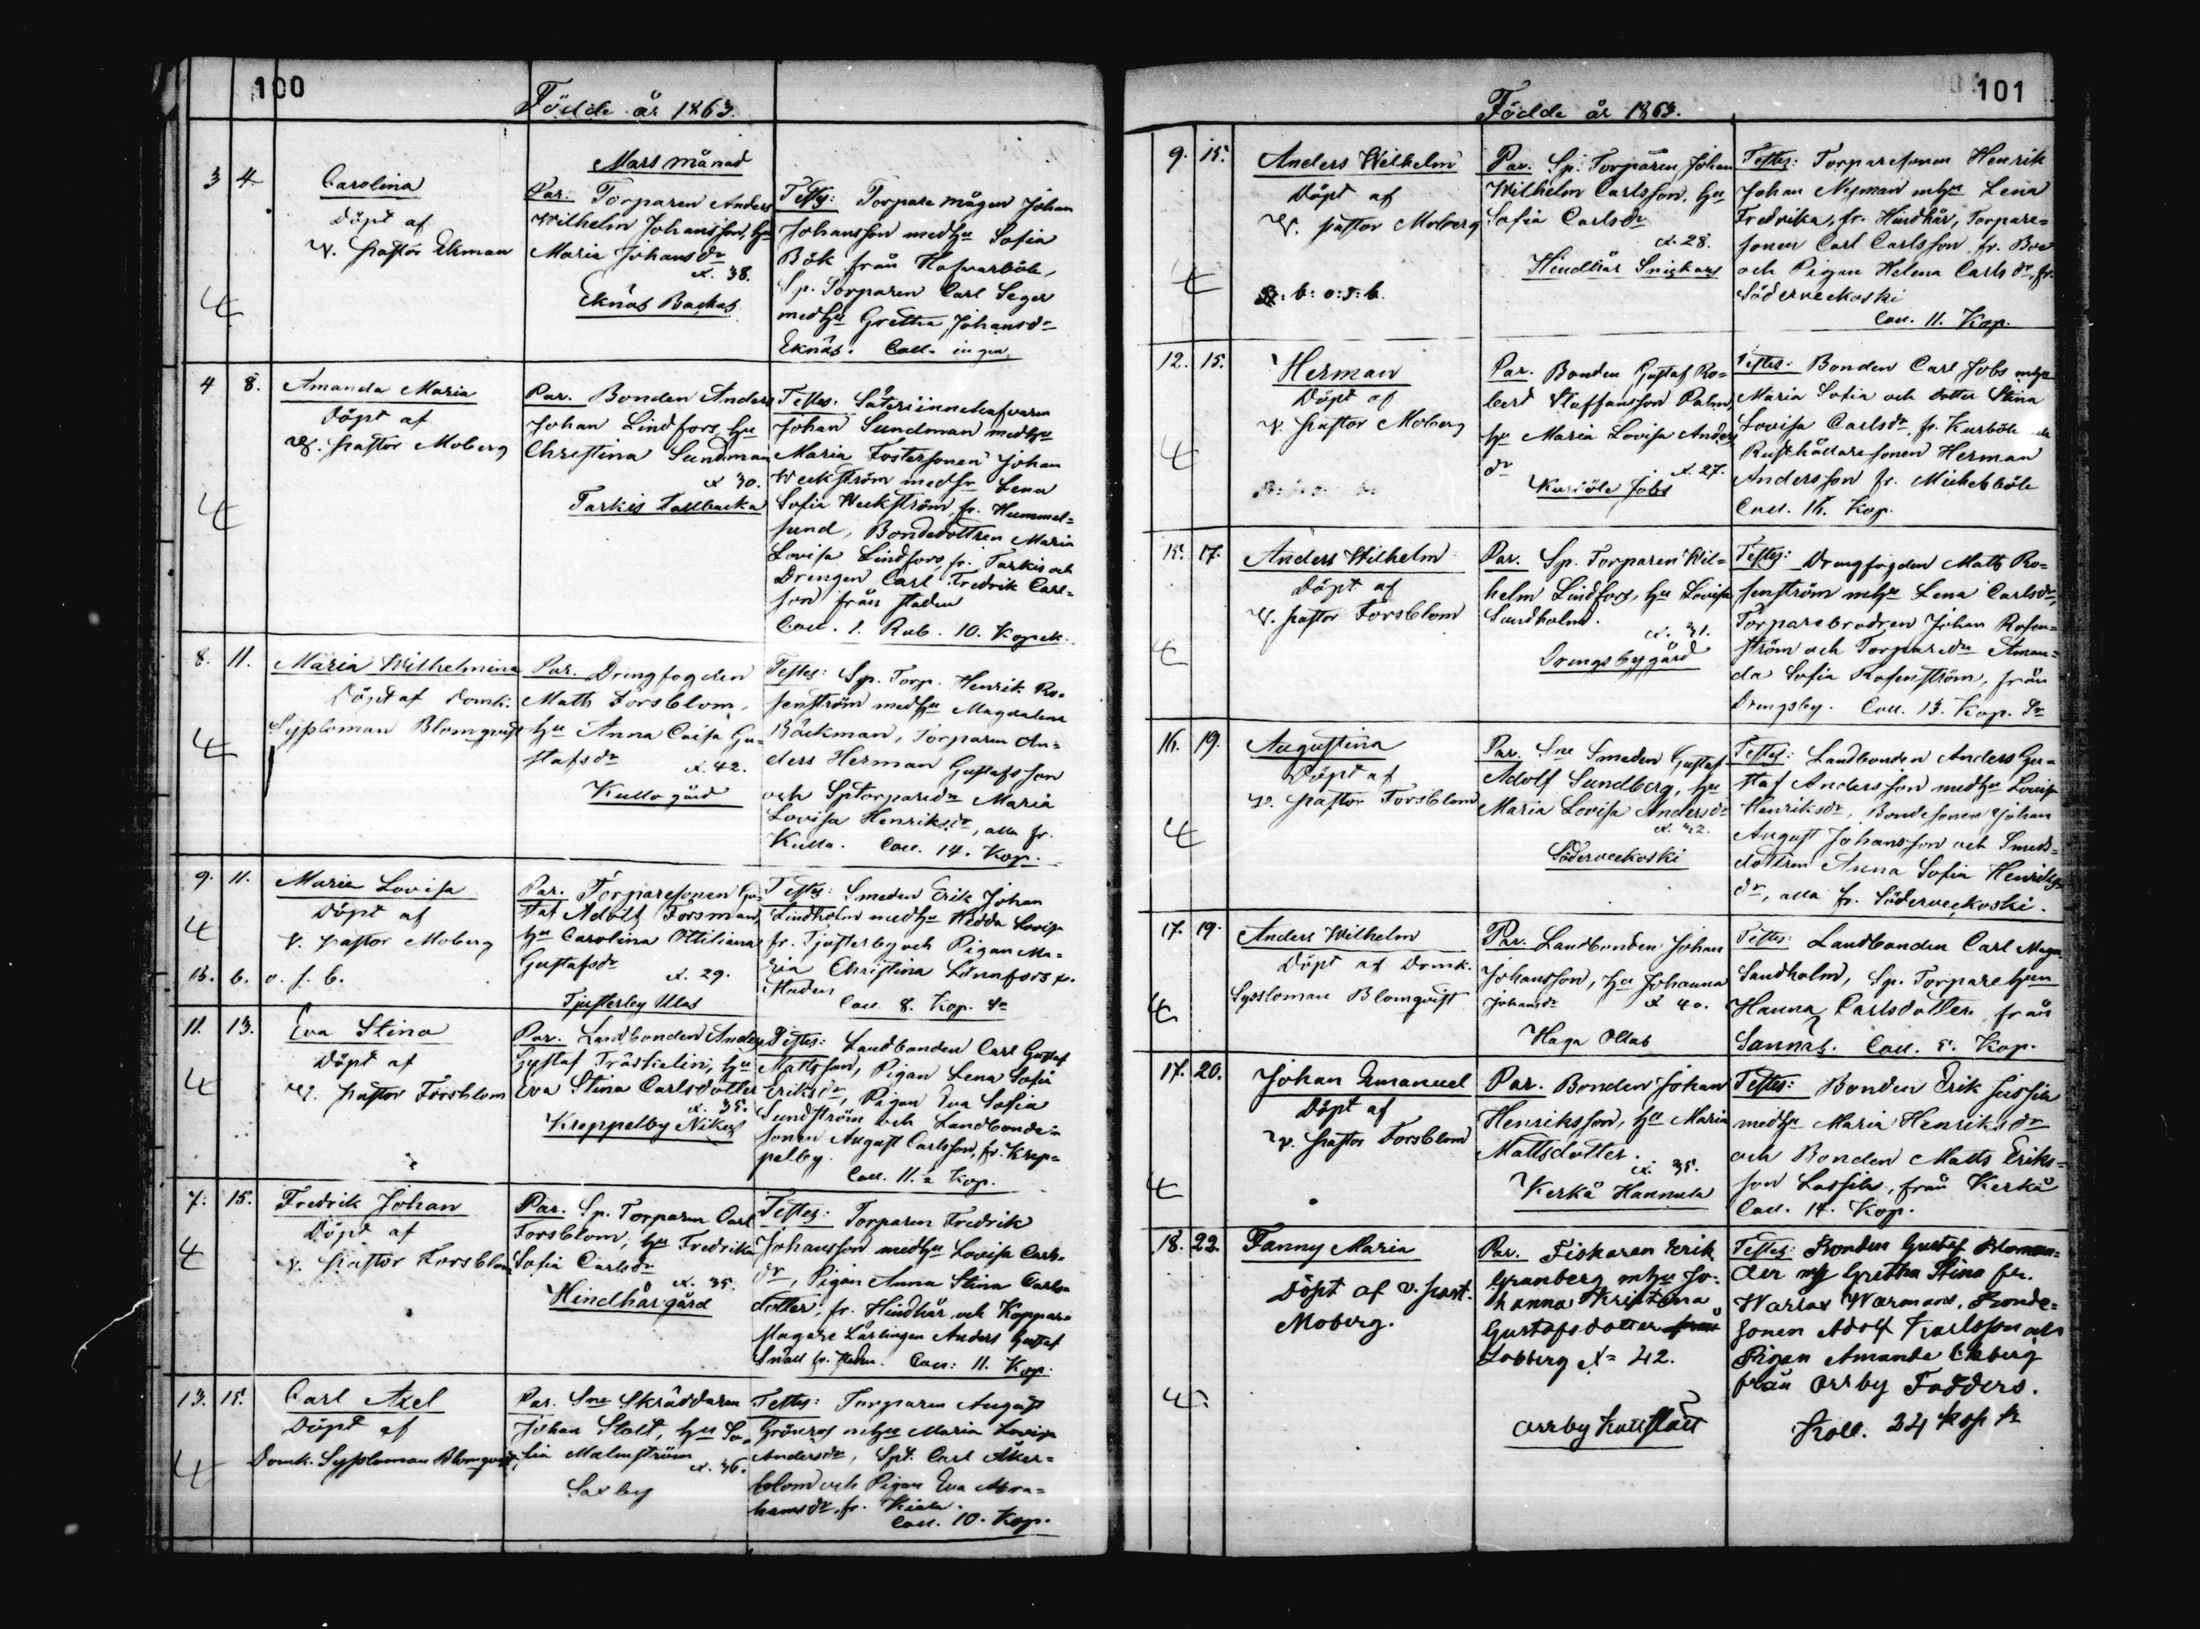 100
Födde år 1863.
Mars månad
3 4.
Carolina
Döpt af
v. pastor Ekman
4
Par. Torparen Anders
Wilhelm Johansson, hu
Maria Johansdr
æt. 38.
Eknäs Backas
Testes: Torpare mågen Johan
Johansson med hu Sofia
Bök från Hafvarböle,
Sp. Torparen Carl Seger
med hu Gretha Johansdr
Eknäs. Coll. ingen.
4 8.
Amanda Maria
Döpt af
V. pastor Moberg
4
Par. Bonden Anders
Johan Lindfors, hu
Christina Sundman
æt 30.
Tarkis Tallbacka
Testes: Säteriinnehafvaren
Johan Sundman med hu
Maria Fostersonen Johan
Weckström med sr Lena
Sofia Weckström, fr. Hummel=
sund, Bondedottren Maria
Lovisa Lindfors, fr. Tarkis och
Drengen Carl Fredrik Carl=
son från staden
Coll. 1. Rub. 10. Kopek.
8. 11.
Maria Wilhelmina
Döpt af Domk:
Syssloman Blomqvist
4
Par. Drengfogden
Matts Forsblom,
hu Anna Caisa Gu=
stafsdr
æt. 42.
Kullo gård
Testes: Sp. Torp. Henrik Ro=
senström med hu Magdalena
Bäckman, Torparen An=
ders Herman Gustafsson
och Sptorparedr Maria
Lovisa Henriksdr, alla fr.
Kullo. Coll. 14. Kop.
9. 11.
Maria Lovisa
Döpt af
V. pastor Moberg
4
B. b. o. s. b.
Par. Torparesonen Gu=
staf Adolf Forsman,
hu Carolina Ottiliana
Gustafsdr
æt. 29.
Tjusterby Ulas
Testes: Smeden Erik Johan
Lindholm med hu Hedda Lovisa
fr. Tjusterby och Pigan Ma=
ria Christina Lönnfors fr.
staden
Coll. 8. Kop. Sr
11. 13.
Eva Stina
Döpt af
V. pastor Forsblom
4
Par. Landbonden Anders
Gustaf Träskelin, hu
Eva Stina Carlsdotter
æt. 35.
Kroppelby Nikus
Testes: Landbonden Carl Gustaf
Mattsson, Pigan Lena Sofia
Eriksdr, Pigan Eva Sofia
Sundström och Landbonde=
sonen August Carlsson, fr. Krop=
pelby.
Coll. 11. Kop.
7. 15.
Fredrik Johan
Döpt af
v. pastor Forsblom
4
Par. Sp. Torparen Carl
Forsblom, hu Fredrika
Sofia Carlsdr
æt. 35.
Hindhår gård
Testes: Torparen Fredrik
Johansson med hu Lovisa Carls=
dr, Pigan Anna Stina Carls=
dotter, fr. Hindhår och Koppar=
slagare Lärlingen Anders Gustaf
Snäll fr. staden. Coll: 11. Kop.
13. 15.
Carl Axel
Döpt af
Domk. Syssloman Blomqvist
4
Par. Sne Skräddaren
Johan Stolt, hu So=
fia Malmström
æt. 36.
Saxby
Testes: Torparen August
Grönros m hu Maria Lovisa
Andersdr, Spt. Carl Åker=
blom och Pigan Eva Abra=
hamsdr, fr. Kiala.
Coll. 10. Kop.
101
Födde år 1863.
9. 15.
Anders Wilhelm
Döpt af
V. pastor Moberg
4
B: b: o: s: b.
Par. Sp. Torparen Johan
Wilhelm Carlsson, hu
Sofia Carlsdr
æt. 28.
Hindhår Snickars
Testes: Torparesonen Henrik
Johan Nyman m hu Lena
Fredrika, fr. Hindhår, Torpare=
sonen Carl Carlsson fr. Boe
och Pigan Helena Carlsdr, fr.
Söderveckoski
Coll. 11. Kop.
12. 15.
Herman
Döpt af
v. pastor Moberg
4
Par. Bonden Gustaf Ro=
bert Staffansson Palm,
hu Maria Lovisa Anders
dr
æt. 27.
Kurböle Jobs
Testes: Bonden Carl Jobs m hu
Maria Sofia och dotter Stina
Lovisa Carlsdr, fr. Kurböle och
Rusthållaresonen Herman
Andersson fr. Mickelsböle
Coll. 16. Kop.
15. 17.
Anders Wilhelm
Döpt af
V. pastor Forsblom
4
Par. Sp. Torparen Wil=
helm Lindfors, hu Lovisa
Sundholm.
æt. 31.
Drengsby gård
Testes: Drengfogden Matts Ro=
senström m hu Lena Carlsdr,
Torparebrodren Johan Rosen=
ström och Torparedr Aman=
da Sofia Rosenström, från
Drengsby. Coll. 13. Kop. Sr
16. 19.
Augustina
Döpt af
v. pastor Forsblom
4
Par. Sne Smeden Gustaf
Adolf Sundberg, hu
Maria Lovisa Andersdr
æt. 42.
Söderveckoski
Testes: Landbonden Anders Gu=
staf Andersson med hu Lovisa
Henriksdr, Bondesonen Johan
August Johansson och Smeds=
dottren Anna Sofia Henriks=
dr, alla fr. Söderveckoski.
17. 19.
Anders Wilhelm
Döpt af Domk.
Syssloman Blomqvist
4
Par. Landbonden Johan
Johansson, hu Johanna
Johansdr
æt 40.
Haga Ollas
Testes: Landbonden Carl Magn.
Sandholm, Sp. Torpare hun
Hanna Carlsdotter från
Sannäs. Coll. 5. Kop.
17. 20.
Johan Emanuel
Döpt af
v. pastor Forsblom
4
Par. Bonden Johan
Henriksson, hu Maria
Mattsdotter.
æt. 35.
Kerko Hannula
Testes: Bonden Erik Jussila
med hu Maria Henriksdr
och Bonden Matts Eriks=
son Lassila, från Kerko
Coll. 14. Kop.
18. 22.
Fanny Maria
Döpt af v. past.
Moberg.
4
Par. Fiskaren Erik
Granberg m hu Jo=
hanna Kristina
Gustafsdotter
Lobberg æt 42.
Orrby Kattslått
Testes: Bonden Gustaf Aleman=
der m hu Gretha Stina fr.
Warlax Warmans, Bonde=
sonen Adolf Karlsson och
Pigan Amanda Ekberg
från Orrby Fodders.
Koll. 34 kop sr